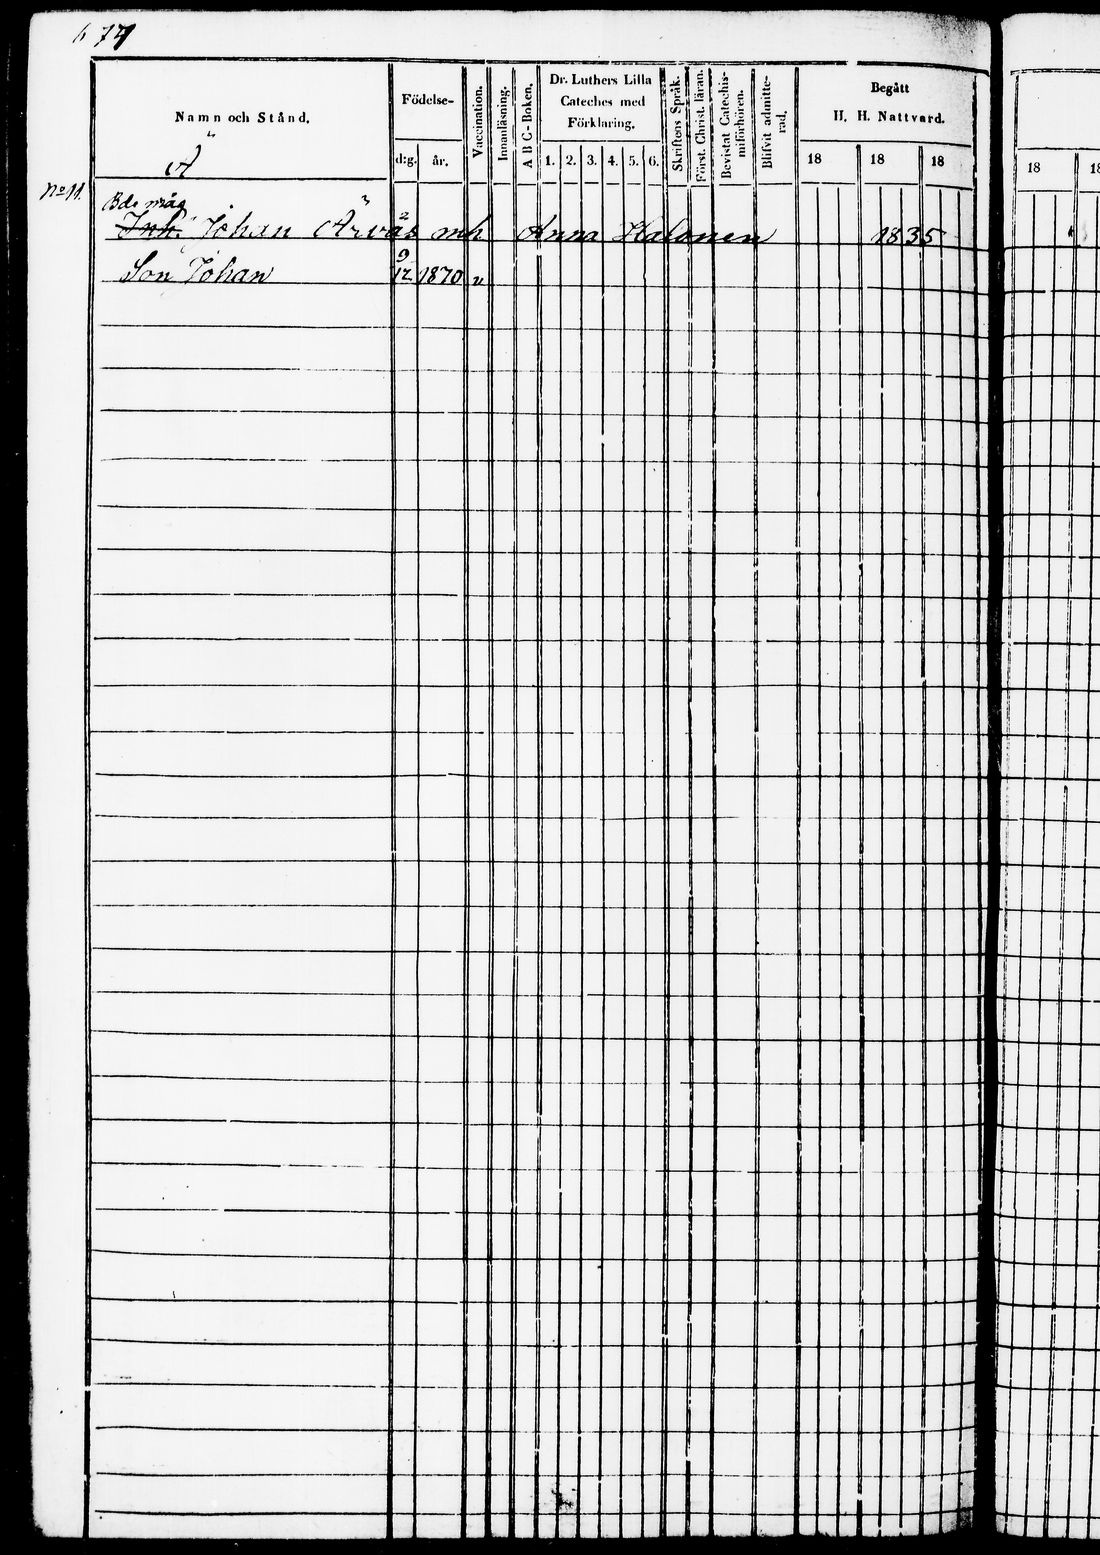 674
Namn och Stånd.
Födelse-
d:g.
år.
Vaccination.
Innanläsning.
A B C-Boken.
Dr. Luthers Lilla
Cateches med
Förklaring.
1. 2. 3. 4. 5. 6.
Skriftens Språk.
Först. Christ. läran.
Bevistat Catechis-
miförhören.
Blifvit admitte-
rad.
Begått
H. H. Nattvard.
18 18 18
18 18
Ä
No 11.
Bde måg
Inh. Johan Ärväs mh Anna Halonen 1835
2
Son Johan 9/12 1870 v